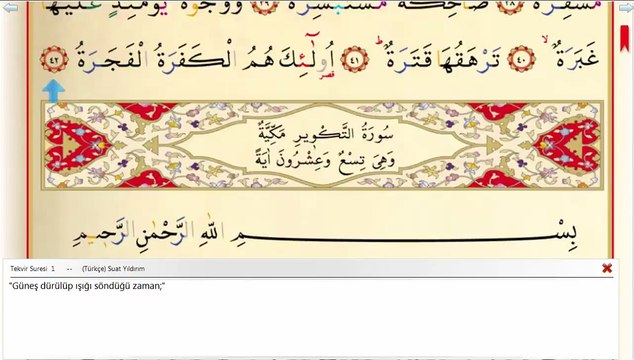 مُسْفِرَةٌ ﴿٣٨﴾ ضَاحِكَةٌ مُسْتَبْشِرَةٌ ﴿٣٩﴾ وَوُجُوهٌ يَوْمَئِذٍ عَلَيْهَا
غَبَرَةٌ ﴿٤٠﴾ تَرْهَقُهَا قَتَرَةٌ ﴿٤١﴾ اُولٰٓئِكَ هُمُ الْكَفَرَةُ الْفَجَرَةُ ﴿٤٢﴾
قصر
سُورَةُ التَّكْوِيرِ مَكِّيَّةٌ
وَهِىَ تِسْعٌ وَعِشْرُونَ اٰيَةً
بِسْمِ اللّٰهِ الرَّحْمٰنِ الرَّحِيمِ
Tekvir Suresi 1 -- (Türkçe) Suat Yıldırım
"Güneş dürülüp ışığı söndüğü zaman;"